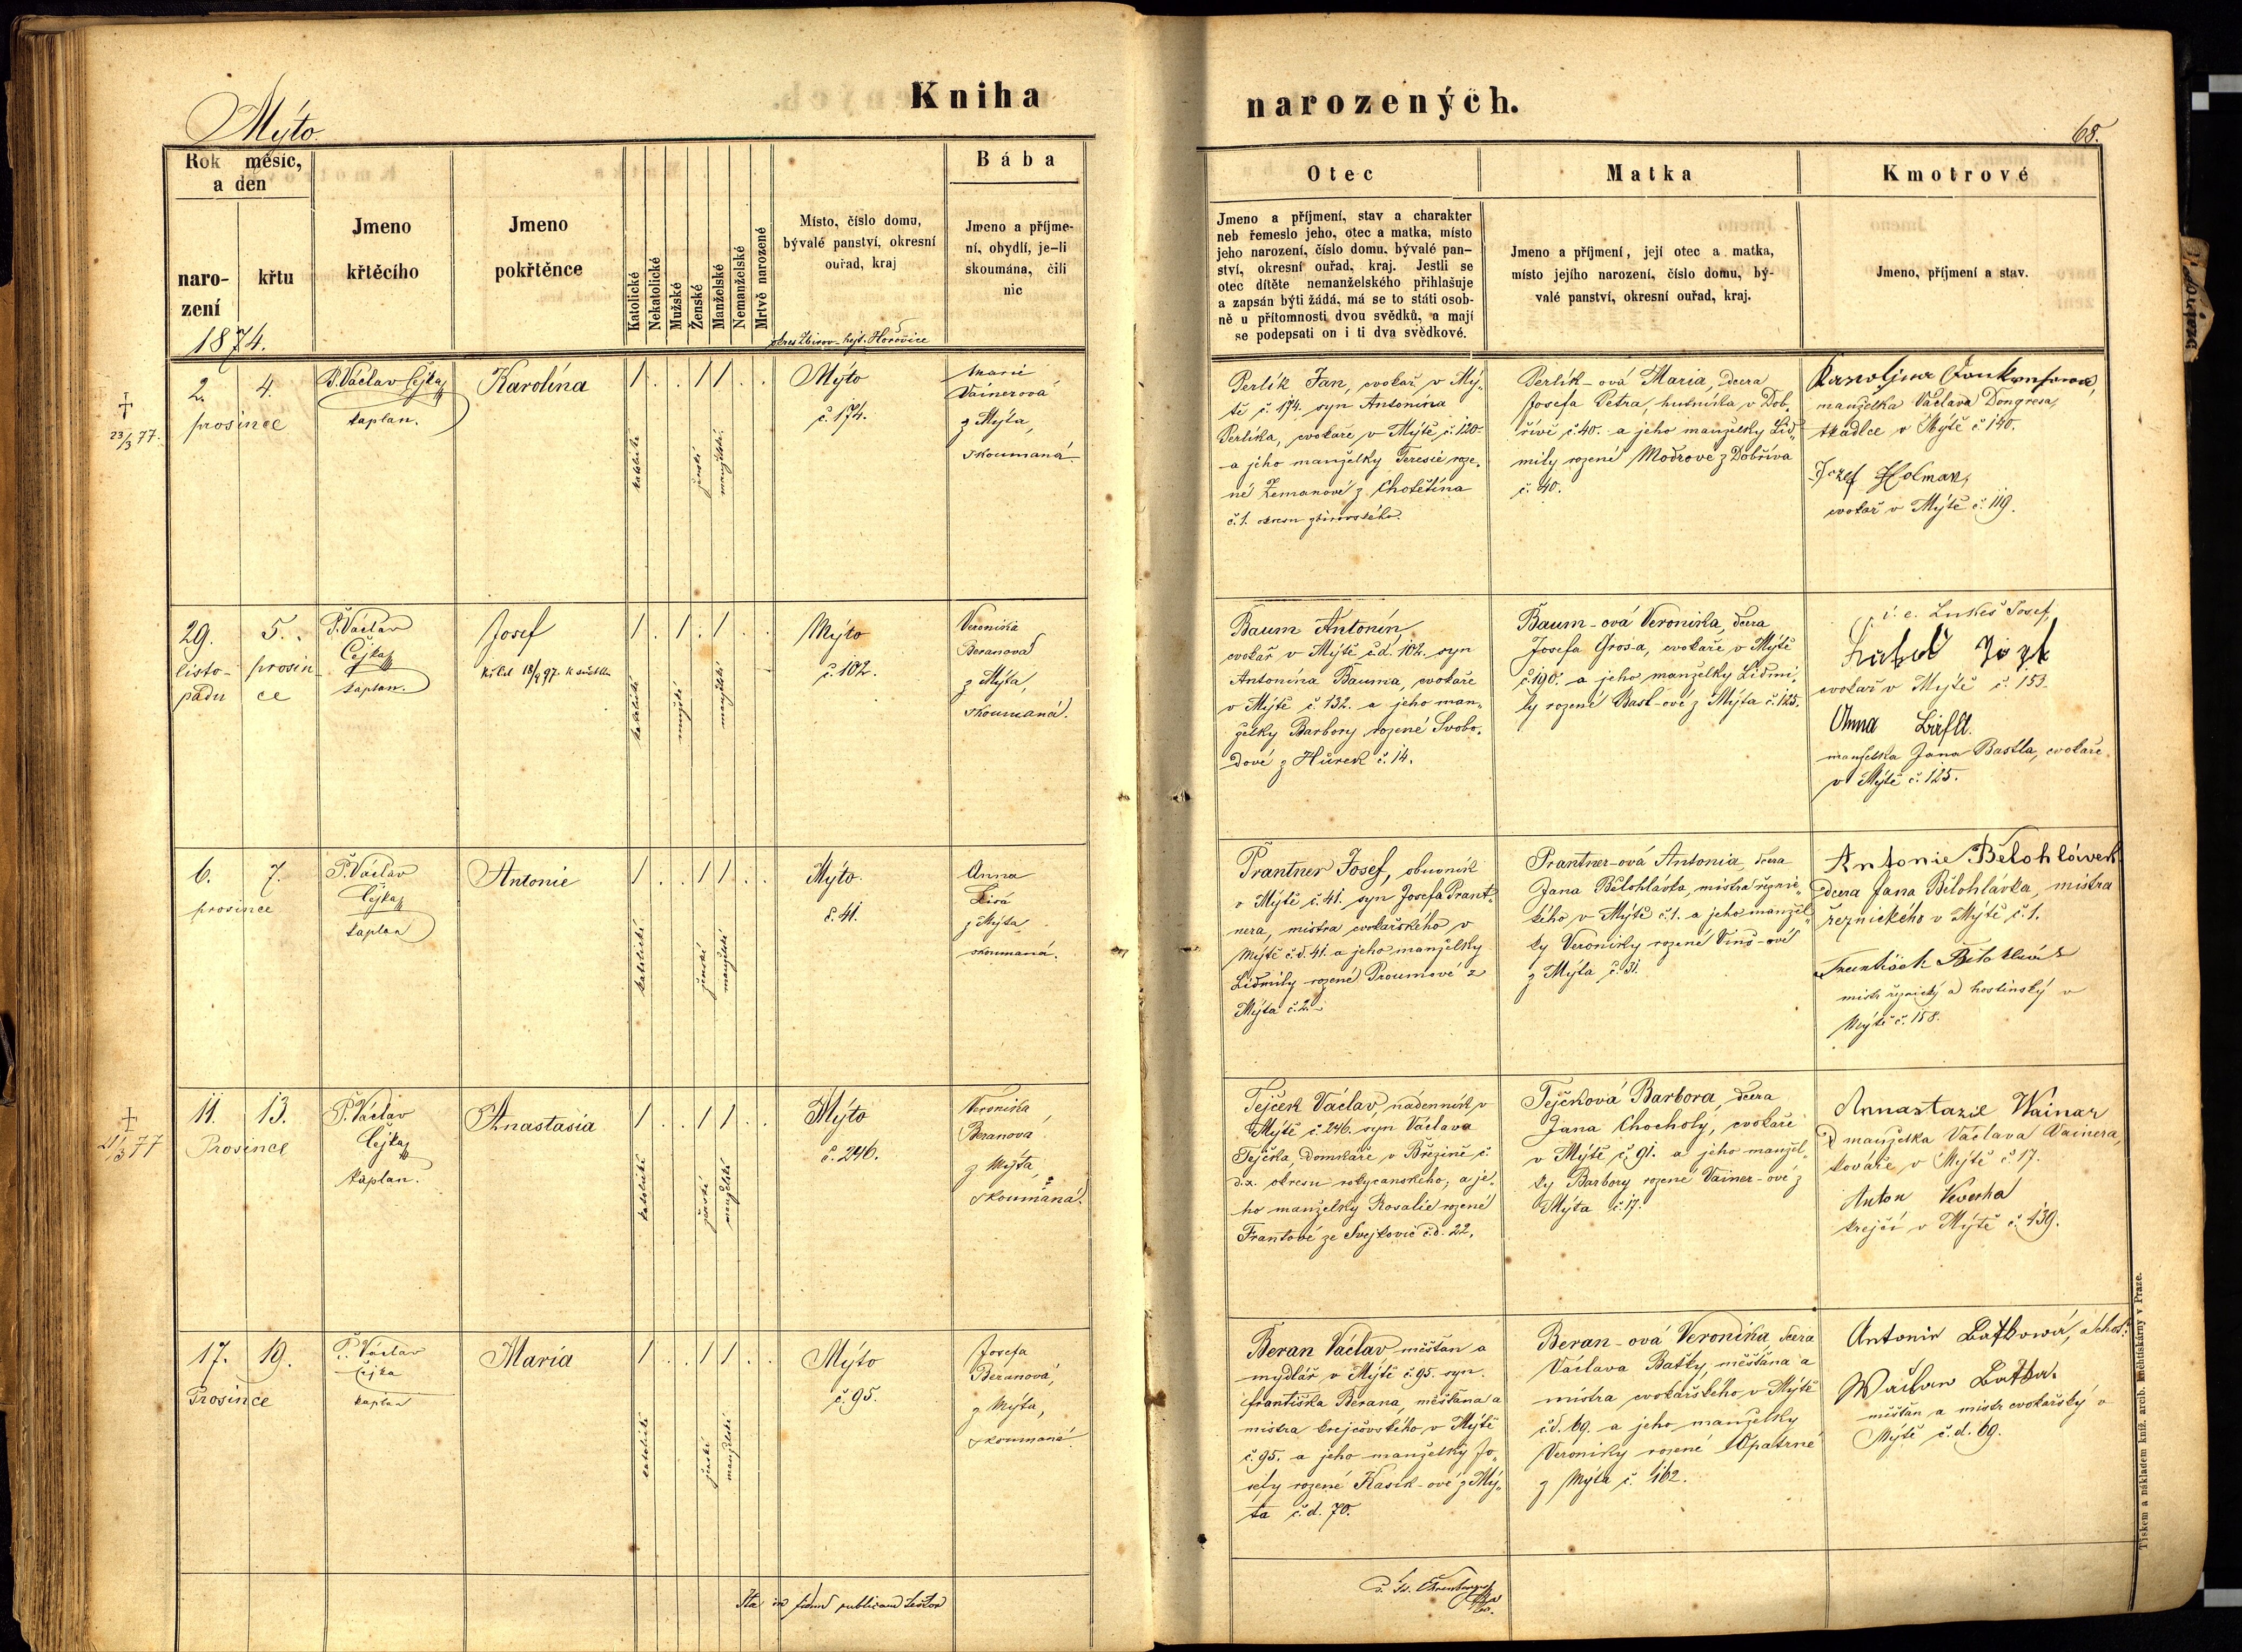 Kniha
narozených.
Mýto.
68.
Rok měsíc,
a den
naro-
zení
křtu
1874.
Jmeno
křtěcího
Jmeno
pokřtěnce
Katolické
Nekatolické
Mužské
Ženské
Manželské
Nemanželské
Mrtvě narozené
Místo, číslo domu,
bývalé panství, okresní
ouřad, kraj
okres Zbirov - hejt. Hořovice
Bába
Jmeno a příjme-
ní, obydlí, je-li
skoumána, čili
nic
Otec
Jmeno a příjmení, stav a charakter
neb řemeslo jeho, otec a matka, místo
jeho narození, číslo domu, bývalé pan-
ství, okresní ouřad, kraj. Jestli se
otec dítěte nemanželského přihlašuje
a zapsán býti žádá, má se to státi osob-
ně u přítomnosti dvou svědků, a mají
se podepsati on i ti dva svědkové.
Matka
Jmeno a příjmení, její otec a matka,
místo jejího narození, číslo domu, bý-
valé panství, okresní ouřad, kraj.
Kmotrové
Jmeno, příjmení a stav.
† 23/3 77.
2. 4.
prosince
P. Václav Čejka
kaplan.
Karolína
1 . . 1 1 . .
katolické
ženské
manželské
Mýto
č. 174.
Marie
Vainerová
z Mýta,
skoumaná.
Perlík Jan, cvokař v Mý-
tě č. 174. syn Antonína
Perlíka, cvokaře v Mýtě č. 120
a jeho manželky Teresie roze-
né Zemanové z Chotětína
č. 1. okresu zbirovského.
Perlík-ová Maria, dcera
Josefa Petra, hutníka v Dob-
řívě č. 40. a jeho manželky Lid-
mily rozené Modrove z Dobříva
č. 40.
manželka Václava Dongresa,
tkadlce v Mýtě č 140.
Jozef Holman,
cvokař v Mýtě č. 119.
29. 5.
listo- prosin
padu ce
P. Václav
Čejka
kaplan.
Josef
1 . 1 . 1 . .
katolické
mužské
manželské
Mýto
č. 102.
Veronika
Beranova
z Mýta,
skoumaná.
Baum Antonín,
cvokař v Mýtě č.d. 102. syn
Antonína Bauma, cvokaře
v Mýtě č 132. a jeho man-
želky Barbory rozené Svobo-
dové z Hůrek č. 14.
Baum-ová Veronika, dcera
Josefa Grosa, cvokaře v Mýtě
č. 190. a jeho manželky Lidmi-
ly rozené Bast-ové z Mýta č. 125.
i. e. Lukeš Josef,
cvokař v Mýtě č. 153.
Anna
manželka Jana Baštla, cvokaře
v Mýtě č. 125.
6. 7.
prosince
P. Václav
Čejka
kaplan
Antonie
1 . . 1 1 . .
katolické
ženské
manželské
Mýto
č. 41.
Anna
Lisá
z Mýta
skoumaná.
Prantner Josef, obuvník
v Mýtě č. 41. syn Josefa Prant-
nera, mistra cvokařského v
Mýtě č.d. 41. a jeho manželky
Lidmily rozené Proumové z
Mýta č. 2.
Prantner-ová Antonia, dcera
Jana Bělohlávka, mistra řeznic-
kého v Mýtě č. 1. a jeho manžel-
ky Veroniky rozené Vinš-ové
z Mýta č. 31.
Antonie Belohláwek
dcera Jana Bělohlávka, mistra
řeznického v Mýtě č. 1.
mistr řeznický a hostinský v
Mýtě č. 158.
† 21/3 77
11. 13.
Prosince
P. Václav
Čejka
kaplan.
Anastasia
1 . . 1 1 . .
katolické
ženské
manželské
Mýto
č. 246.
Veronika
Beranova
z Mýta,
skoumaná.
Tejček Václav, nádenník v
Mýtě č. 246. syn Václava
Tejčka, domkáře v Březině č.
d.x. okresu rokycanského, a je-
ho manželky Rosalie rozené
Frantové ze Svejkovic č.d. 22.
Tejčková Barbora, dcera
Jana Chocholy, cvokaře
v Mýtě č. 91. a jeho manžel-
ky Barbory rozené Vainer-ové z
Mýta č. 17.
Annastazie Wainar
manželka Václava Vainera,
kováře v Mýtě č 17.
Anton Veverka
krejčí v Mýtě č. 139.
17. 19.
Prosince
P. Václav
Čejka
kaplan
Maria
1 . . 1 1 . .
katolické
ženské
manželské
Mýto
č. 95.
Josefa
Beranová,
z Mýta,
skoumaná.
Beran Václav měšťan a
mydlář v Mýtě č. 95. syn
Františka Berana, měšťana a
mistra krejčovského v Mýtě
č. 95. a jeho manželky Jo-
sefy rozené Kasík-ové z Mý-
ta č.d. 70.
Beran-ová Veronika dcera
Václava Bašty, měšťana a
mistra cvokařského v Mýtě
č.d. 69. a jeho manželky
Veroniky rozené Opatrné
z Mýta č. 162.
měšťan a mistr cvokařský v
Mýtě č.d. 69.
Ita in fidem publicam testor
Tiskem a nákladem kníž. arcib. knihtiskárny v Praze.